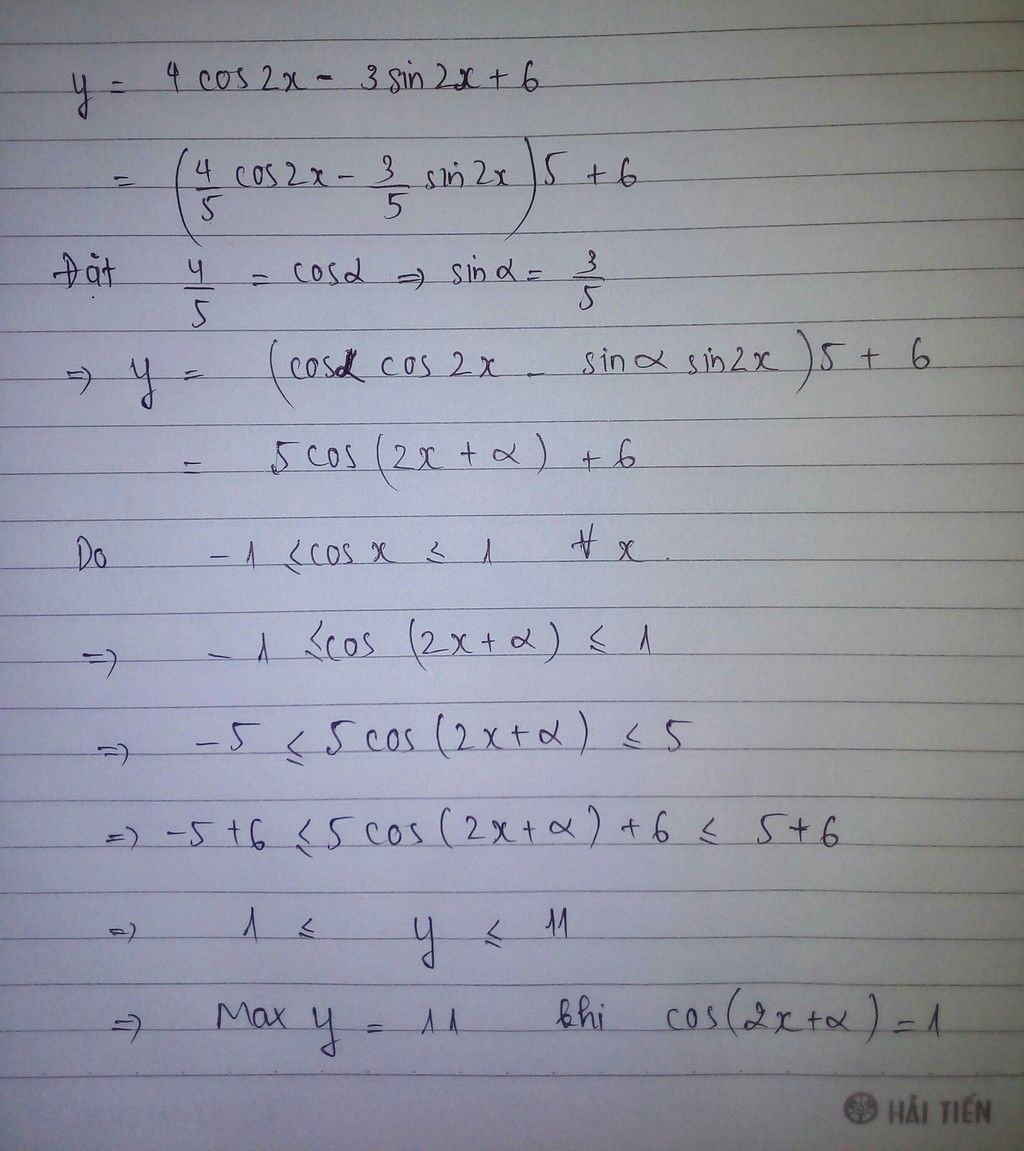 y = 4 cos 2x - 3 sin 2x + 6
= (4/5 cos 2x - 3/5 sin 2x) 5 + 6
Đặt 4/5 = cos α ⇒ sin α = 3/5
⇒ y = (cos α cos 2x - sin α sin 2x) 5 + 6
= 5 cos (2x + α) + 6
Do -1 ≤ cos x ≤ 1 ∀ x.
⇒ -1 ≤ cos (2x + α) ≤ 1
⇒ -5 ≤ 5 cos (2x + α) ≤ 5
⇒ -5 + 6 ≤ 5 cos (2x + α) + 6 ≤ 5 + 6
⇒ 1 ≤ y ≤ 11
⇒ Max y = 11 khi cos (2x + α) = 1
HẢI TIẾN